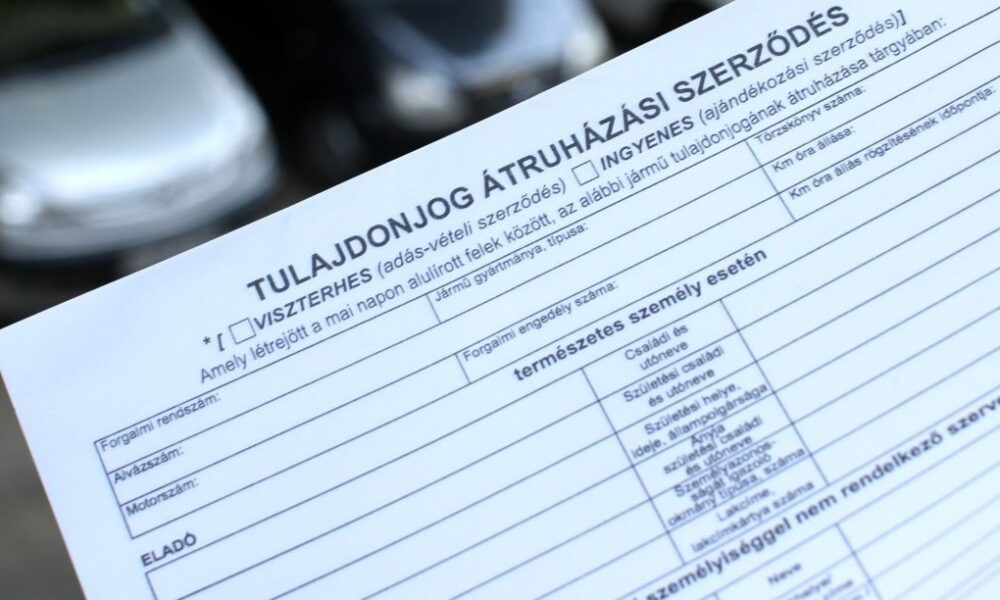 TULAJDONJOG ÁTRUHÁZÁSI SZERZŐDÉS
* [ VISZTERHES (adás-vételi szerződés) INGYENES (ajándékozási szerződés)]
Amely létrejött a mai napon alulírott felek között, az alábbi jármű tulajdonjogának átruházása tárgyában:
Forgalmi rendszám:
Jármű gyártmánya, típusa:
Törzskönyv száma:
Alvázszám:
Forgalmi engedély száma:
Km óra állása:
Motorszám:
Km óra állás rögzítésének időpontja:
természetes személy esetén
ELADÓ
Családi és
utóneve
Születési családi
és utóneve
Születési helye,
ideje, állampolgársága
Anyja
születési családi
és utóneve
Személyazonos-
ságát igazoló
okmány típusa, száma
Lakcíme,
lakcímkártya száma
személyiséggel nem rendelkező
Neve